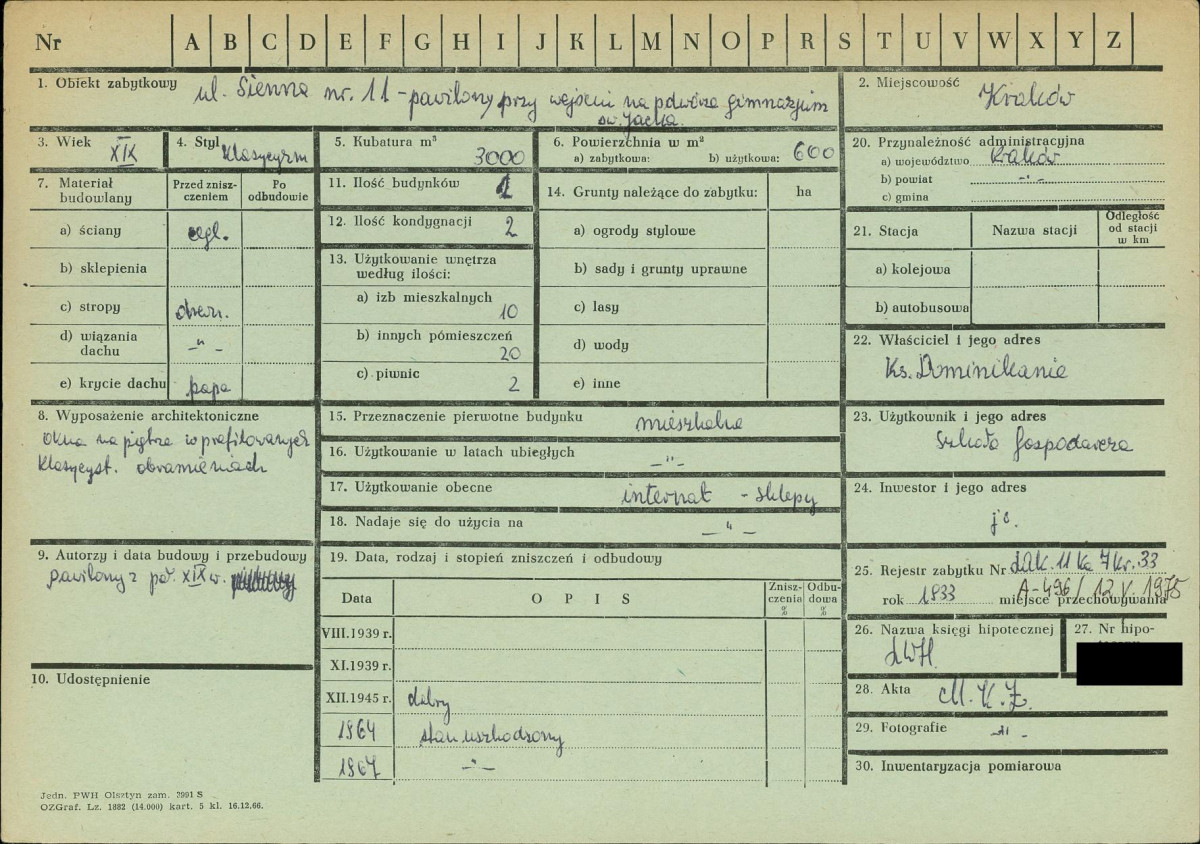 Nr A B C D E F G H I J K L M N O P R S T U V W X Y Z
1. Obiekt zabytkowy ul. Sienna nr. 11 - pawilony przy wejściu na podwórze gimnazjum
św. Jacka.
2. Miejscowość Kraków
3. Wiek XIX
4. Styl klasycyzm
5. Kubatura m³ 3000
6. Powierzchnia w m²
a) zabytkowa: b) użytkowa: 600
7. Materiał
budowlany
Przed znisz-
czeniem
Po
odbudowie
a) ściany cegl.
b) sklepienia
c) stropy drewn.
d) wiązania
dachu -"-
e) krycie dachu papa
8. Wyposażenie architektoniczne
okna na piętrze w profilowanych
klasycyst. obramieniach
9. Autorzy i data budowy i przebudowy
pawilony z poł. XIX w.
10. Udostępnienie
11. Ilość budynków
12. Ilość kondygnacji 2
13. Użytkowanie wnętrza
według ilości:
a) izb mieszkalnych
10
b) innych pómieszczeń
20
c) piwnic 2
14. Grunty należące do zabytku: ha
a) ogrody stylowe
b) sady i grunty uprawne
c) lasy
d) wody
e) inne
15. Przeznaczenie pierwotne budynku mieszkalne
16. Użytkowanie w latach ubiegłych
-"-
17. Użytkowanie obecne internat - sklepy
18. Nadaje się do użycia na -"-
19. Data, rodzaj i stopień zniszczeń i odbudowy
Data OPIS
Znisz-
czenia
%
Odbu-
dowa
%
VIII.1939 r.
XI.1939 r.
XII.1945 r. dobry
1964 stan uszkodzony
1967 -"-
20. Przynależność administracyjna
a) województwo Kraków
b) powiat -"-
c) gmina
21. Stacja Nazwa stacji
Odległość
od stacji
w km
a) kolejowa
b) autobusowa
22. Właściciel i jego adres
Ks. Dominikanie
23. Użytkownik i jego adres
Szkoła Gospodarcza
24. Inwestor i jego adres
25. Rejestr zabytku Nr
A-496/12 V. 1975
rok 1933 miejsce przechowywania
26. Nazwa księgi hipotecznej
LWH.
27. Nr hipo-
28. Akta M. K. Z.
29. Fotografie -"-
30. Inwentaryzacja pomiarowa
Jedn. PWH Olsztyn zam. 2991 S
OZGraf. Lz. 1882 (14.000) kart. 5 kl. 16.12.66.